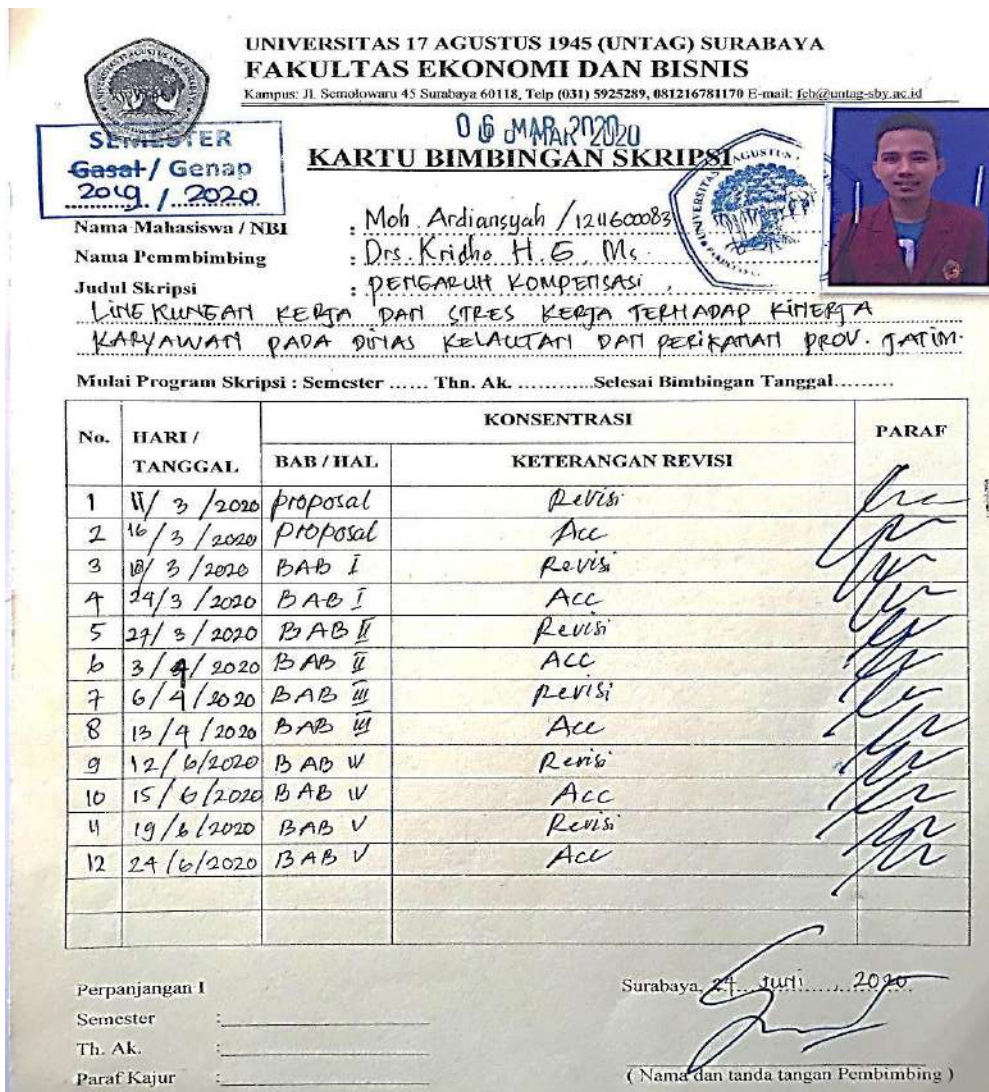 UNIVERSITAS 17 AGUSTUS 1945 (UNTAG) SURABAYA
FAKULTAS EKONOMI DAN BISNIS
Kampus: Jl. Semolowaru 45 Surabaya 60118, Telp (031) 5925289, 081216781170 E-mail: feb@untag-sby.ac.id
SEMESTER
Gasal / Genap
2019 / 2020
06 MAR 2020
KARTU BIMBINGAN SKRIPSI
Nama Mahasiswa / NBI : Moh. Ardiansyah / 1211600083
Nama Pemmbimbing : Drs. Kridho H. G, Ms.
Judul Skripsi : PENGARUH KOMPENSASI,
LINGKUNGAN KERJA DAN STRES KERJA TERHADAP KINERJA
KARYAWAN PADA DINAS KELAUTAN DAN PERIKANAN PROV. JATIM.
Mulai Program Skripsi : Semester ...... Thn. Ak. ............Selesai Bimbingan Tanggal.........
No. HARI / TANGGAL KONSENTRASI PARAF
BAB / HAL KETERANGAN REVISI
1 11/3/2020 proposal Revisi
2 16/3/2020 proposal Acc
3 18/3/2020 BAB I Revisi
4 24/3/2020 BAB I Acc
5 27/3/2020 BAB II Revisi
6 3/4/2020 BAB II Acc
7 6/4/2020 BAB III Revisi
8 13/4/2020 BAB III Acc
9 12/6/2020 BAB IV Revisi
10 15/6/2020 BAB IV Acc
11 19/6/2020 BAB V Revisi
12 24/6/2020 BAB V Acc
Perpanjangan I
Surabaya, 24 Juni 2020
Semester :
Th. Ak. :
Paraf Kajur :
( Nama dan tanda tangan Pembimbing )